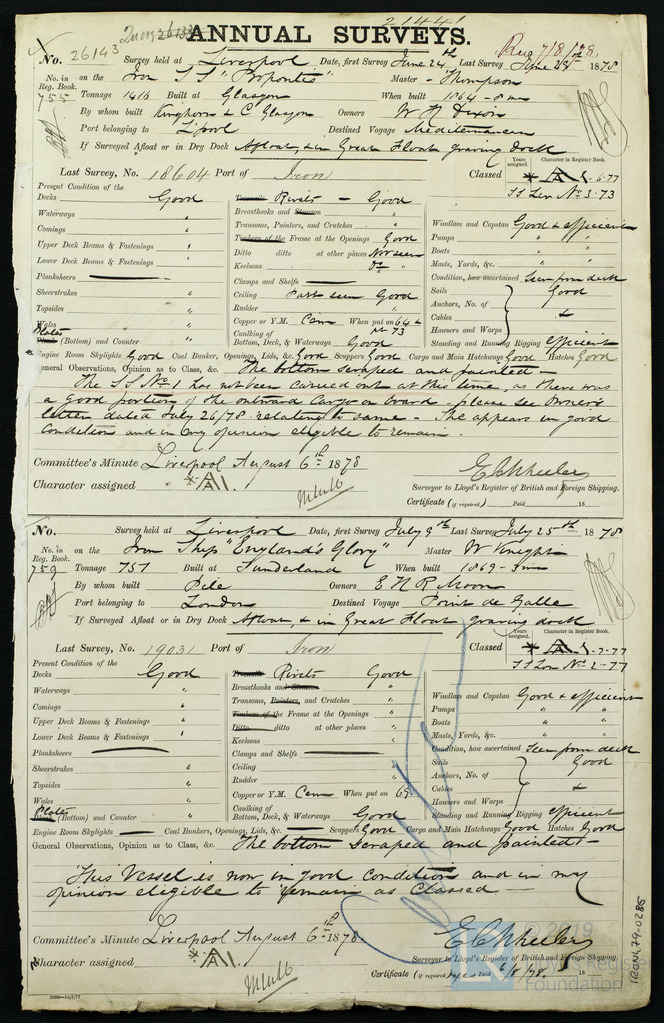 21441
ANNUAL SURVEYS.
No. 26143 Survey held at Liverpool Date, first Survey June 24th Last Survey 1878
No. in Reg. Book. 755 on the Iron S S "Propontis" Master Thompson
Tonnage 1416 Built at Glasgow When built 1864 - 8 mo
By whom built Kinghorn & C Glasgow Owners W H Dixon
Port belonging to L'pool Destined Voyage Mediterranean
If Surveyed Afloat or in Dry Dock Afloat, & in Great Float graving dock
Years assigned. Character in Register Book.
Last Survey, No. 18604 Port of Iron Classed A 1 - 6-77
S S Lon No 3-73
Present Condition of the
Decks Good
Waterways "
Comings "
Upper Deck Beams & Fastenings "
Lower Deck Beams & Fastenings "
Planksheers
Sheerstrakes "
Topsides "
Wales "
Plates (Bottom) and Counter "
Treenails Rivets - Good
Breasthooks and Stemson "
Transoms, Pointers, and Crutches "
Timbers of the Frame at the Openings Good
Ditto ditto at other places Not seen
Keelsons Do "
Clamps and Shelfs
Ceiling Part seen Good
Rudder "
Copper or Y.M. Cem When put on 64 &
Caulking of 73
Bottom, Deck, & Waterways Good
Windlass and Capstan Good & efficient
Pumps " "
Boats " "
Masts, Yards, &c. " "
Condition, how ascertained Seen from deck
Sails Good
Anchors, No. of
Cables &
Hawsers and Warps
Standing and Running Rigging efficient
Engine Room Skylights Good Coal Bunker, Openings, Lids, &c. Good Scuppers Good Cargo and Main Hatchways Good Hatches Good
General Observations, Opinion as to Class, &c. The bottom scraped and painted -
The S S No 1 has not been carried out at this time, as there was
a good portion of the outward Cargo on board - please see Owners
letter dated July 26/78 relating to same - She appears in good
Condition and in my opinion eligible to remain.
Committee's Minute Liverpool August 6th 1878
Character assigned A 1 E C Wheeler
Surveyor to Lloyd's Register of British and Foreign Shipping.
Certificate (if required) Paid 18
No. Survey held at Liverpool Date, first Survey July 9th Last Survey July 25th 1878
No. in Reg. Book. 759 on the Iron Ship "England's Glory" Master W Knight
Tonnage 751 Built at Sunderland When built 1869 - 3 mo
By whom built Pile Owners E H R Moon
Port belonging to London Destined Voyage Point de Galle
If Surveyed Afloat or in Dry Dock Afloat, & in Great Float graving dock
Years assigned. Character in Register Book.
Last Survey, No. 19031 Port of Iron Classed A 1 - 7-77
S S Lon No 2-77
Present Condition of the
Decks Good
Waterways "
Comings "
Upper Deck Beams & Fastenings "
Lower Deck Beams & Fastenings "
Planksheers
Sheerstrakes "
Topsides "
Wales "
Plates (Bottom) and Counter "
Treenails Rivets Good
Breasthooks and Stemson "
Transoms, Pointers, and Crutches "
Timbers of the Frame at the Openings "
Ditto ditto at other places "
Keelsons "
Clamps and Shelfs
Ceiling "
Rudder "
Copper or Y.M. Cem When put on 69
Caulking of
Bottom, Deck, & Waterways Good
Windlass and Capstan Good & efficient
Pumps " "
Boats " "
Masts, Yards, &c. " "
Condition, how ascertained Seen from deck
Sails Good
Anchors, No. of
Cables &
Hawsers and Warps
Standing and Running Rigging efficient
Engine Room Skylights Coal Bunkers, Openings, Lids, &c. Scuppers Good Cargo and Main Hatchways Good Hatches Good
General Observations, Opinion as to Class, &c. The bottom scraped and painted -
This Vessel is now in good Condition and in my
opinion eligible to remain as Classed
Committee's Minute Liverpool August 6th 1878.
Character assigned A 1 E C Wheeler
Surveyor to Lloyd's Register of British and Foreign Shipping.
Certificate (if required) Paid 6/8/78. 18
2000-15/5/77
© 2019
Lloyd's Register
Foundation
IRON479-0285